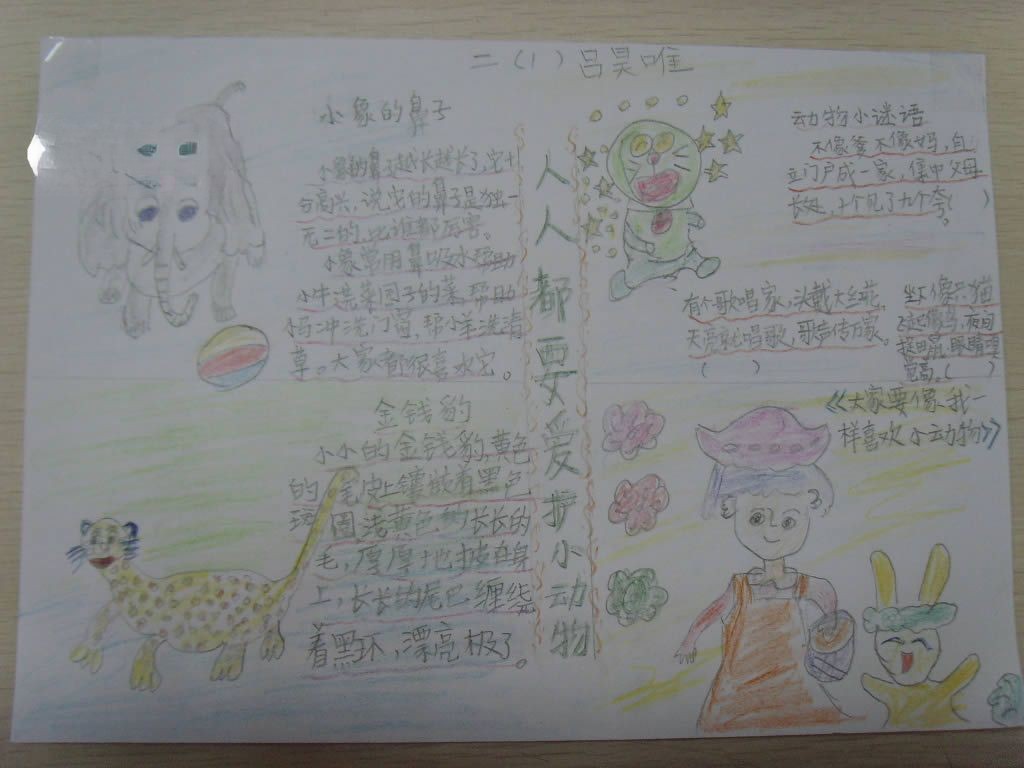 二（1）吕昊唯
小象的鼻子
小象的鼻子越长越长了，它十
分高兴，说：我的鼻子是独一
无二的，比谁都厉害。
小象常用鼻吸水帮助
小牛浇菜园子的菜，帮助
小马冲洗门窗，帮小羊洗清
草。大家都很喜欢它。
金钱豹
小小的金钱豹，黄色
的毛皮上镶嵌着黑色
斑圈，浅黄色的长长的
毛，厚厚地披在身
上，长长的尾巴缠绕
着黑环，漂亮极了。
人人都要爱护小动物
动物小谜语
不像爹不像妈，自
立门户成一家，集中父母
长处，十个见了九个夸。（ ）
有个歌唱家，头戴大红花，
天旁就唱歌，歌声传万家。
（ ）
坐下像只猫
飞起像鸟，夜间
捉田鼠，眼睛
（ ）
《大家要像我一
样喜欢小动物》